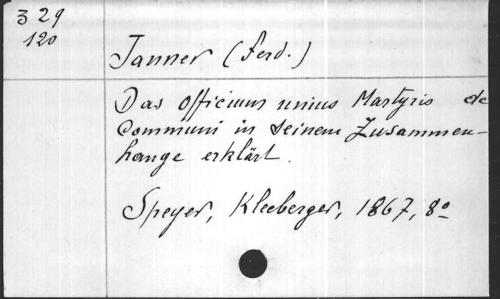 329
120
Janner (Ferd.)
Das Officium unius Martyris de
Communi in seinem Zusammen-
hange erklärt.
Speyer, Kleeberger, 1867, 8º